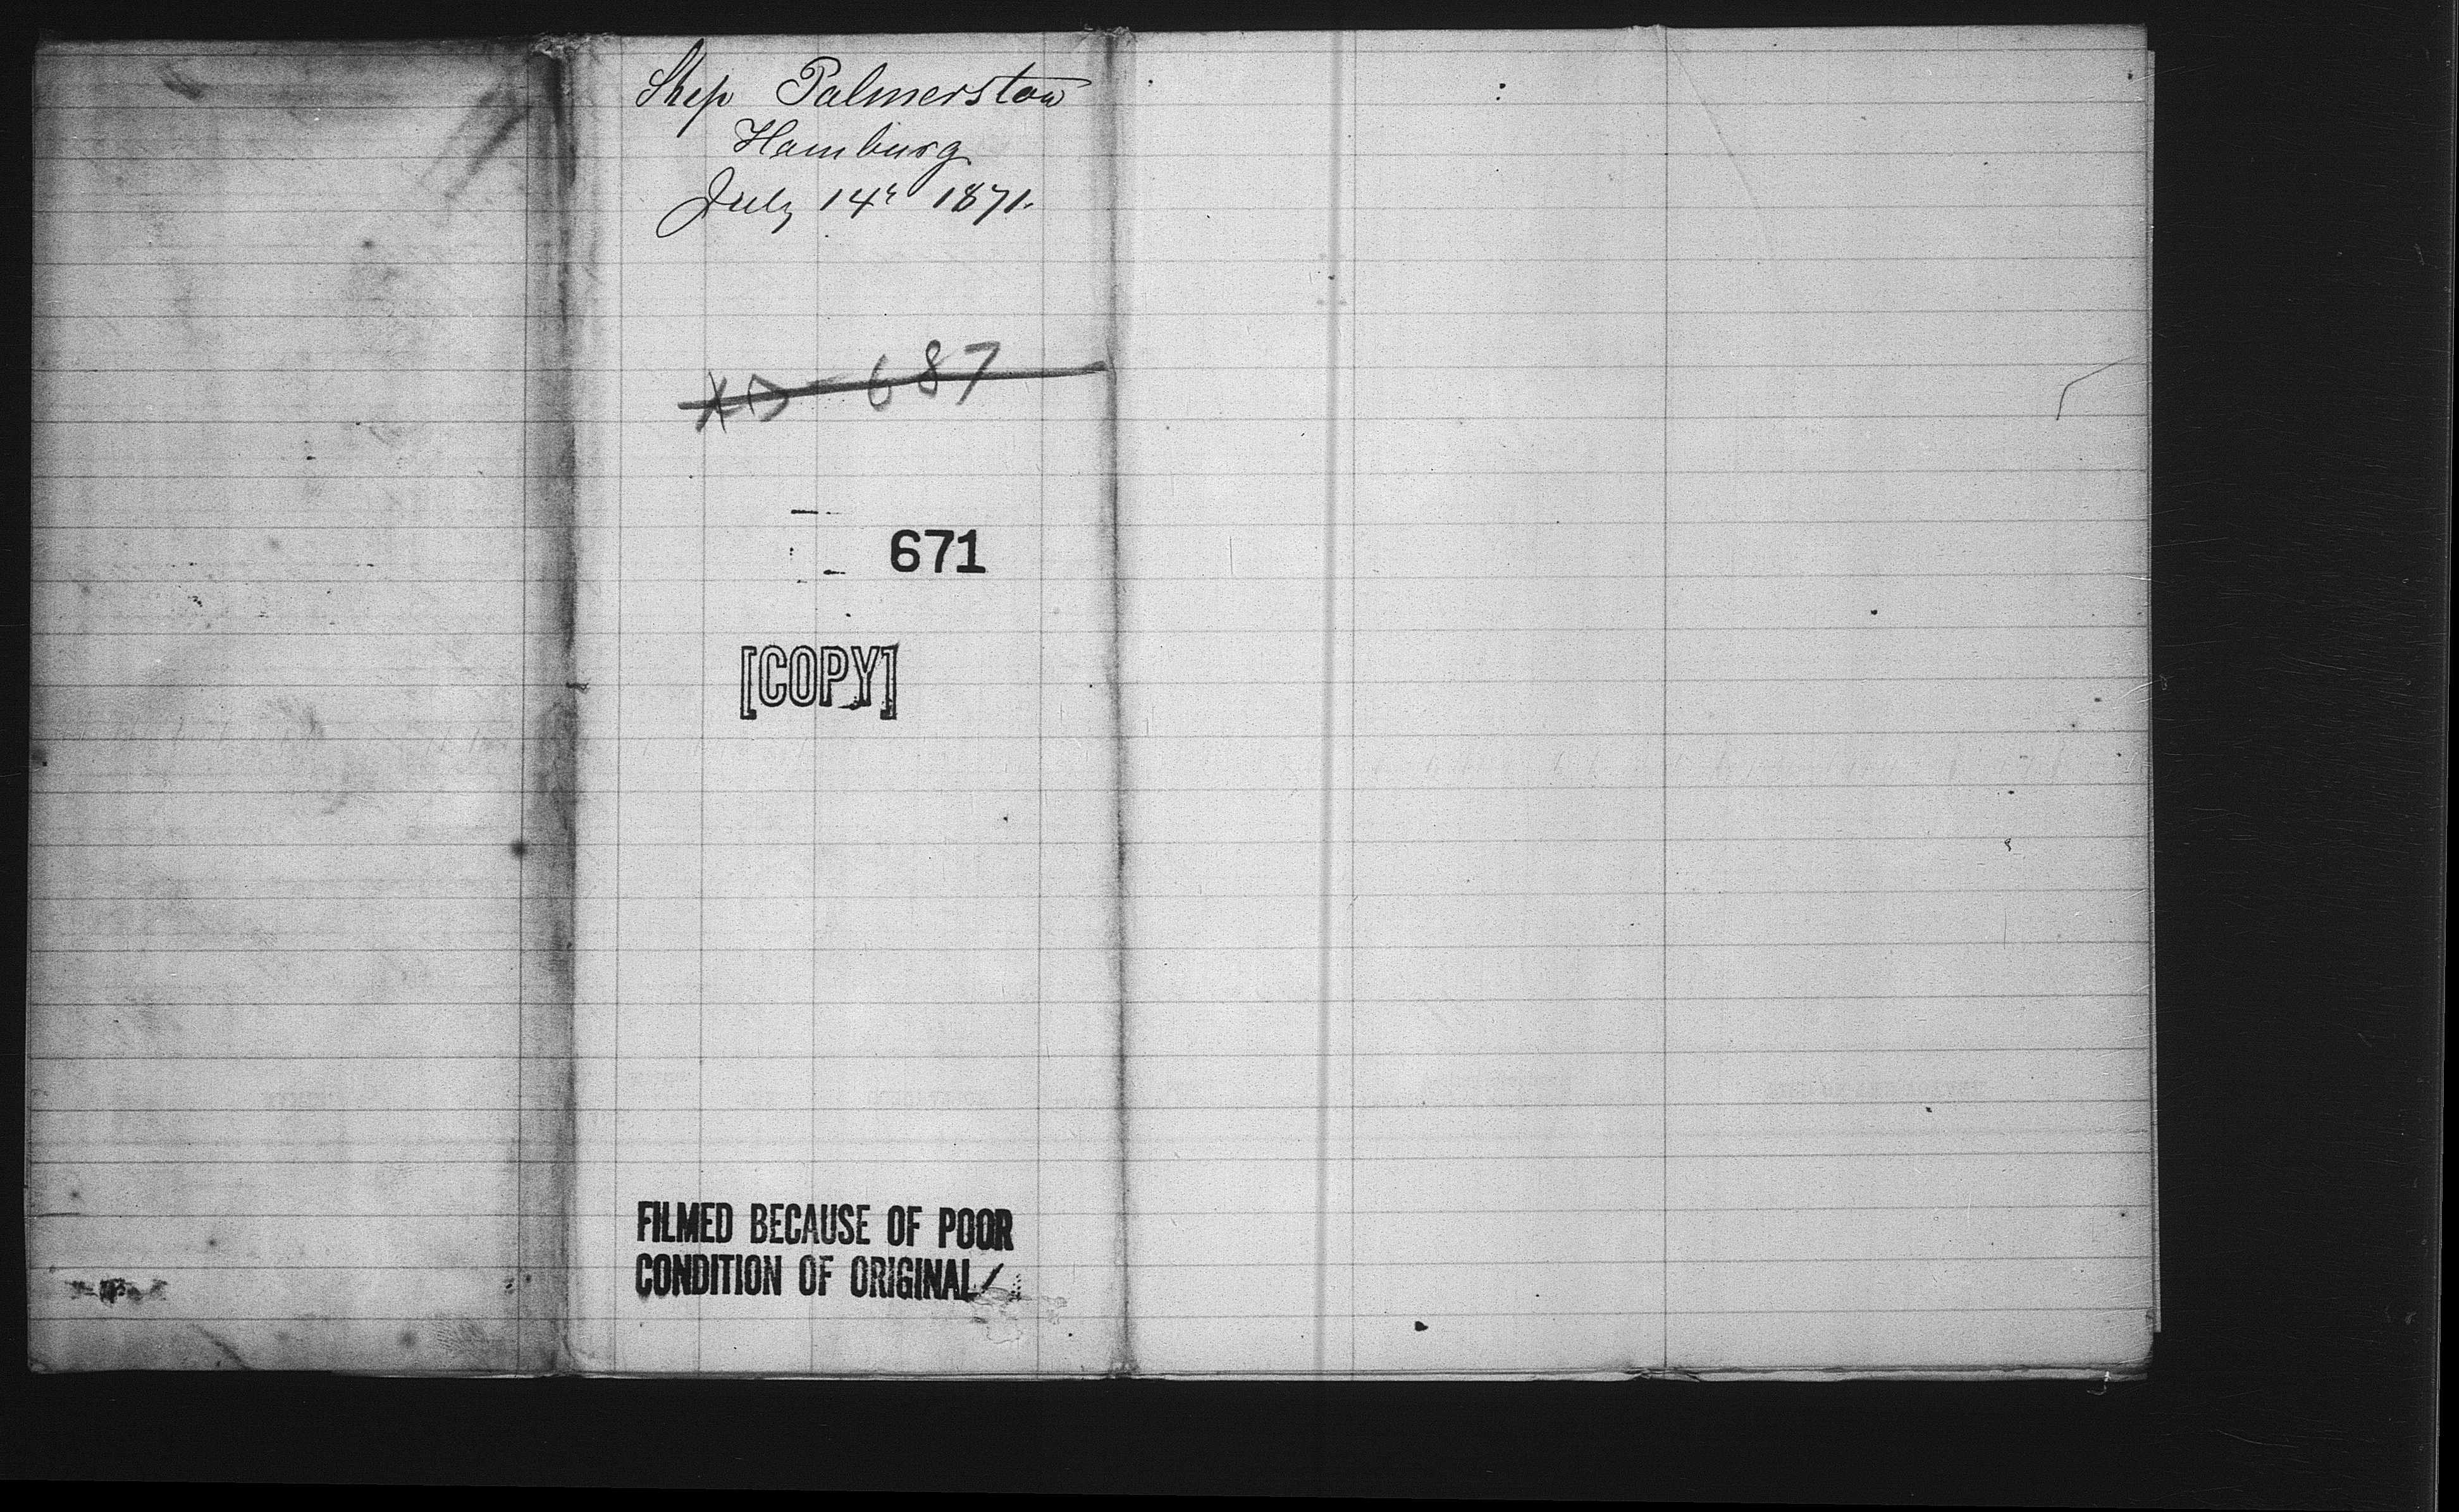 Ship Palmerston
Hamburg
July 14th 1871.
XD-687
671
[COPY]
FILMED BECAUSE OF POOR
CONDITION OF ORIGINAL